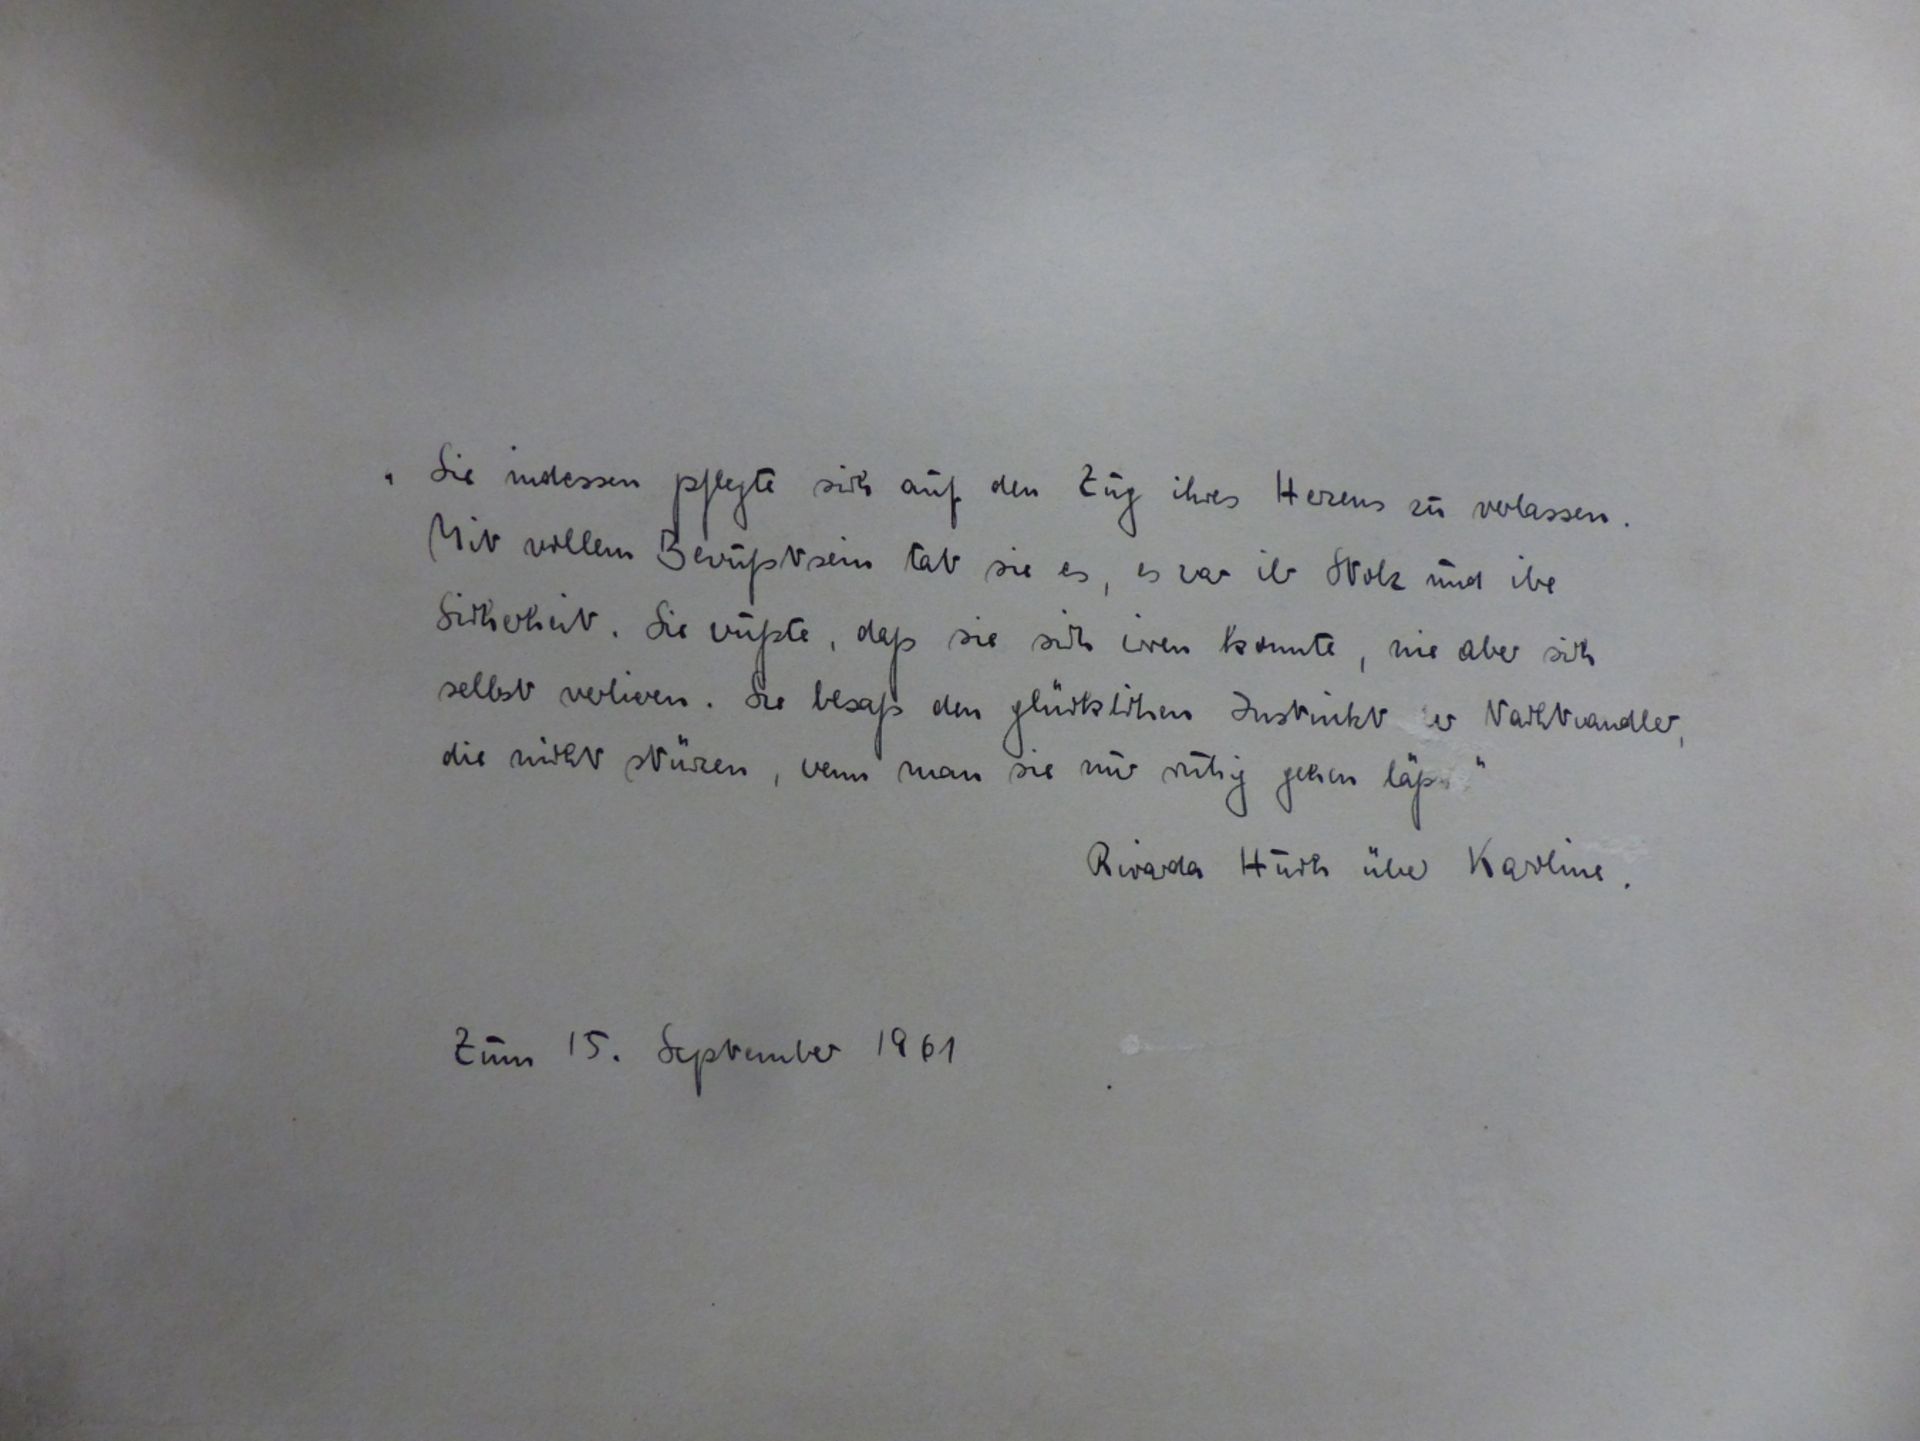 "Sie indessen pflegte sich auf den Zug ihres Herzens zu verlassen.
Mit vollem Bewußtsein tat sie es, es war ihr Stolz und ihre
Sicherheit. Sie wußte, daß sie sich irren konnte, nie aber sich
selbst verlieren. Sie besaß den glücklichen Instinkt er Nachtwandler,
die nicht stürzen, wenn man sie nur ruhig gehen läß "
Ricarda Huch über Karoline.
Zum 15. September 1961